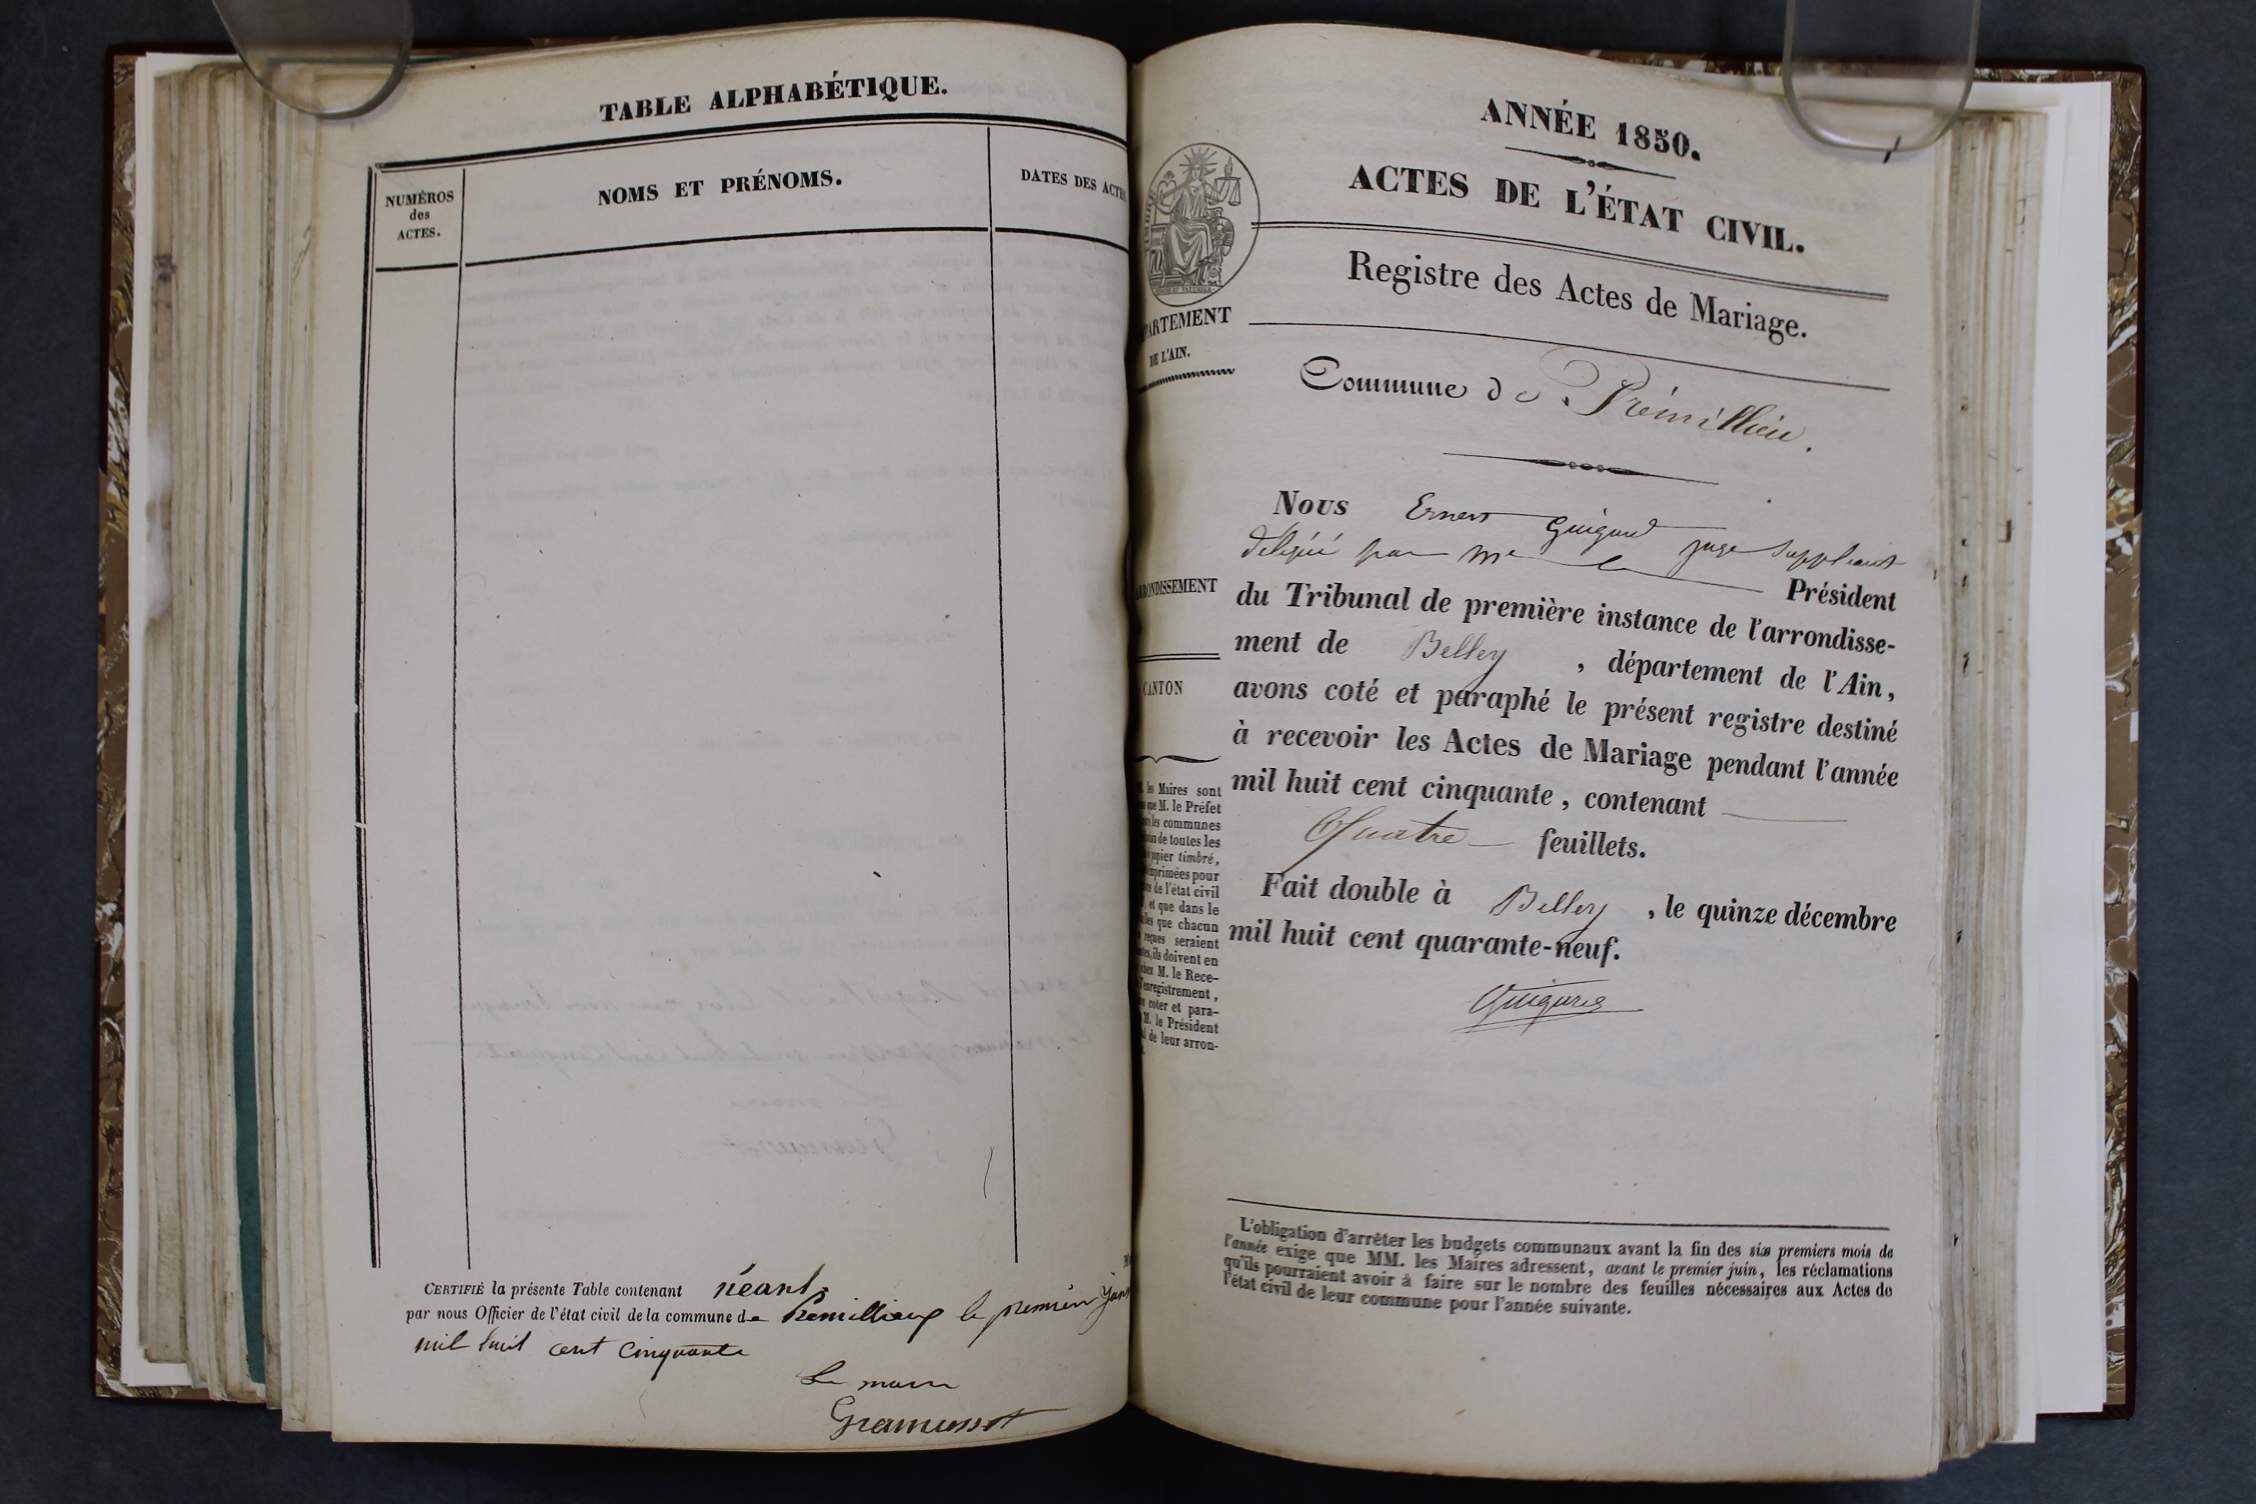 TABLE ALPHABÉTIQUE.
NUMÉROS
des
ACTES.
NOMS ET PRÉNOMS.
DATES DES ACTES
CERTIFIÉ la présente Table contenant néant
par nous Officier de l'état civil de la commune de Premillieux le premier janv
mil huit cent cinquante
Le maire
Gramusset
ANNÉE 1850.
ACTES DE L'ÉTAT CIVIL.
Registre des Actes de Mariage.
PARTEMENT
DE L'AIN.
Commune de Prémillieu.
Nous Ernest Guigard juge Suppléant
délégué par Mr le Président
du Tribunal de première instance de l'arrondisse-
ment de Belley, département de l'Ain,
avons coté et paraphé le présent registre destiné
à recevoir les Actes de Mariage pendant l'année
mil huit cent cinquante, contenant
Quatre feuillets.
Fait double à Belley, le quinze décembre
mil huit cent quarante-neuf.
RRONDISSEMENT
CANTON
les Maires sont
que M. le Préfet
les communes
de toutes les
papier timbré,
imprimées pour
de l'état civil
et que dans le
que chacun
reçues seraient
ils doivent en
chez M. le Rece-
l'enregistrement,
coter et para-
M. le Président
de leur arron-
L'obligation d'arrêter les budgets communaux avant la fin des six premiers mois de
l'année exige que MM. les Maires adressent, avant le premier juin, les réclamations
qu'ils pourraient avoir à faire sur le nombre des feuilles nécessaires aux Actes de
l'état civil de leur commune pour l'année suivante.